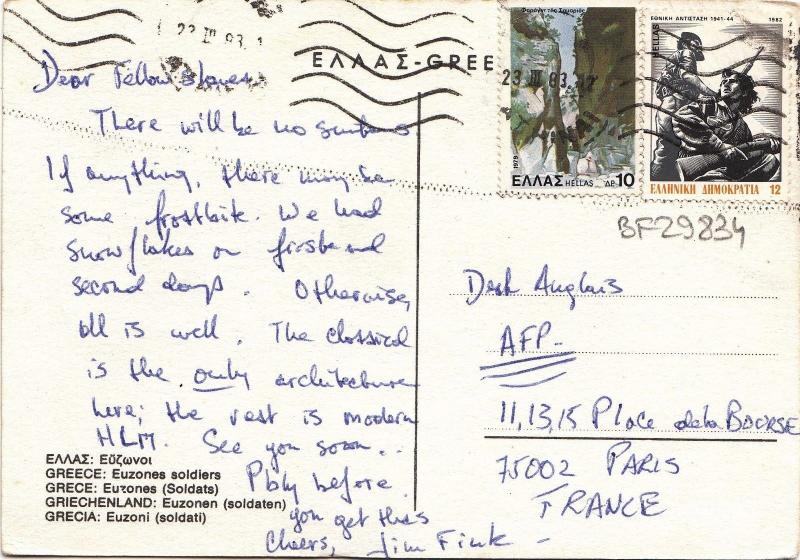 23 III 83
ΕΛΛΑΣ-GREE
Dear Fellow slaves,
There will be no suntans
If anything, there may be
some frostbite. We had
snowflakes on first and
second days. Otherwise,
all is well. The classical
is the only architecture
here; the rest is modern
HLM. See you soon..
Pbly before
you get this
Cheers, Jim Fink -
ΕΛΛΑΣ: Εὔζωνοι
GREECE: Euzones soldiers
GRECE: Euzones (Soldats)
GRIECHENLAND: Euzonen (soldaten)
GRECIA: Euzoni (soldati)
Φαράγγι της Σαμαριάς
23 III 83
1979
ΕΛΛΑΣ HELLAS ΔΡ 10
ΕΘΝΙΚΗ ΑΝΤΙΣΤΑΣΗ 1941-44 1982
HELLAS
ΕΛΛΗΝΙΚΗ ΔΗΜΟΚΡΑΤΙΑ 12
BF29834
Desk Anglais
AFP-
11,13,15 Place de la BOURSE
75002 PARIS
FRANCE